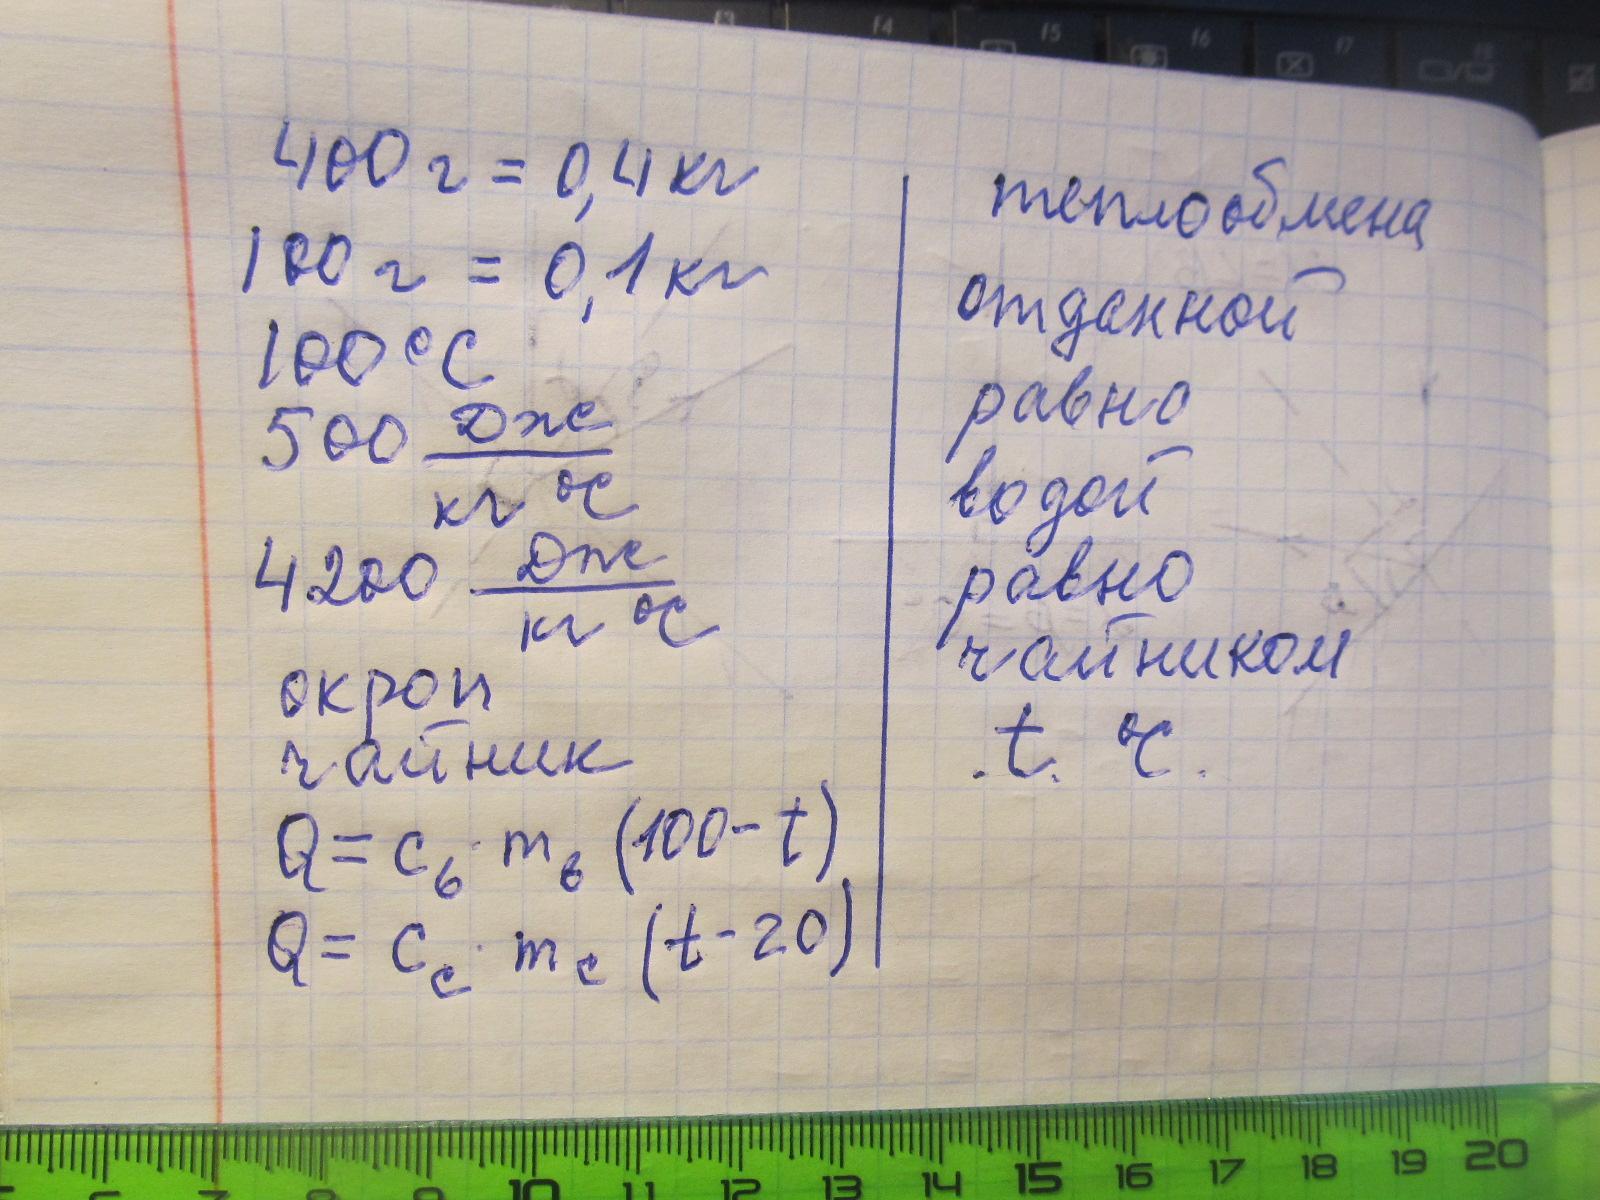 400 г = 0,4 кг
100 г = 0,1 кг
100 °C
500 Дж
кг °C
4200 Дж
кг °C
окроп
чайник
Q = c в · m в (100 - t)
Q = c с · m с (t - 20)
теплообмена
отданной
равно
водой
равно
чайником
. t. °C .
f3 f4 f5 f6 f7 f8
7 8 9 10 11 12 13 14 15 16 17 18 19 20